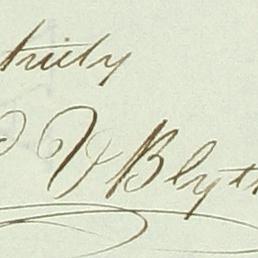 truly
V Blyth